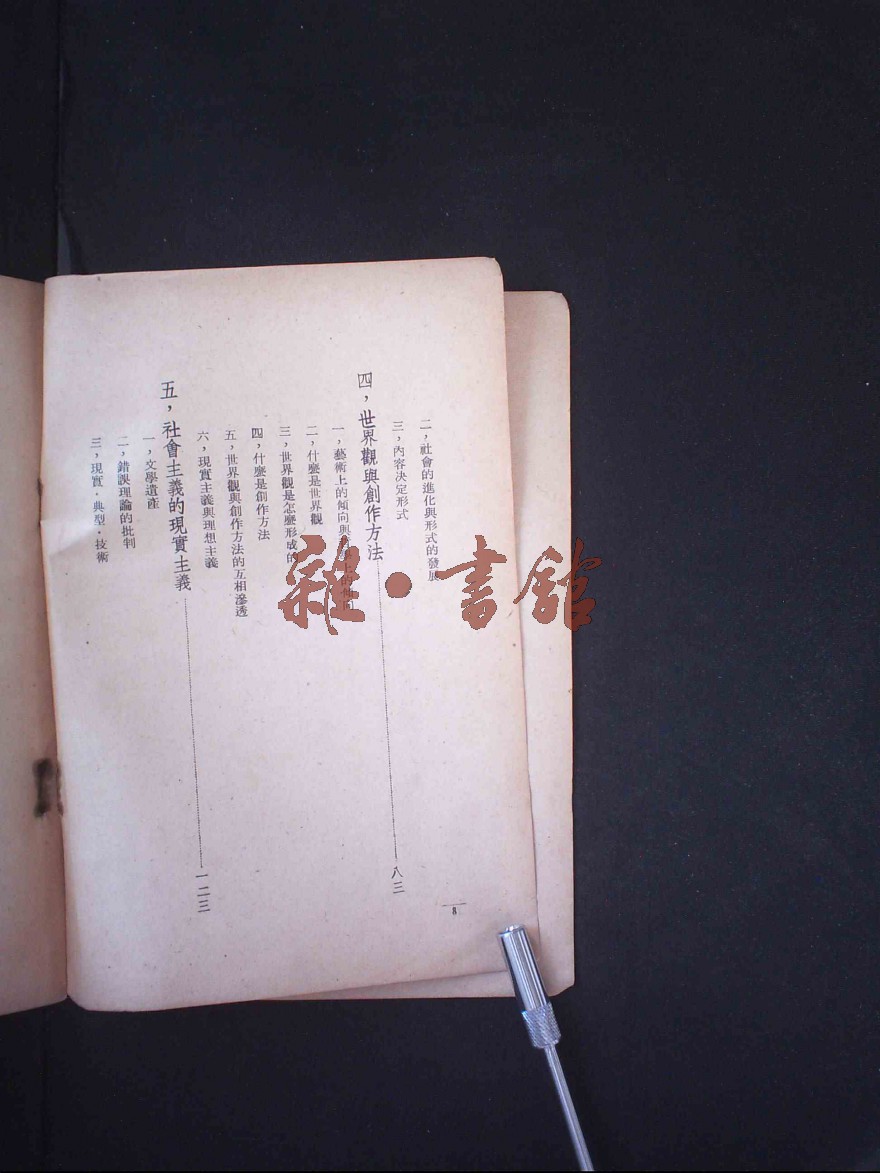 二，社會的進化與形式的發展
三，內容決定形式
四，世界觀與創作方法……八三
一，藝術上的傾向與上的傾向
二，什麼是世界觀
三，世界觀是怎麼形成的
四，什麼是創作方法
五，世界觀與創作方法的互相滲透
六，現實主義與理想主義
五，社會主義的現實主義……一二三
一，文學遺產
二，錯誤理論的批判
三，現實·典型·技術
8
雜·書館